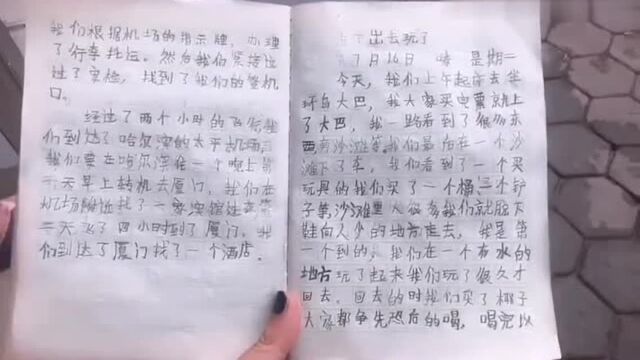 我们根据机场的指示牌，办理
了行李托运。然后我们紧接
过了安检，找到了我们的登机
口。
经过了两个小时的飞行我
们到达了哈尔滨的太平机场，
我们要在哈尔滨住一个晚上第
二天早上转机去厦门，我们在
机场附近找了一家宾馆住
天飞了四小时到了厦门，我
们到达了厦门找了一个酒店。
出去玩了
7月16日 晴 星期一
今天，我们上午起床去坐
环岛大巴，我大家买电票就上
了大巴，我一路看到了很多东
西有沙滩等，我们最后在一个沙
滩下了车，我们看到了一个买
玩具的我们买了一个桶、三个铲
子等，沙滩里人很多我们就脱下
鞋向人少的地方走去，我是第
一个到的，我们在一个有水的
地方玩了起来我们玩了很久才
回去，回去的时我们买了椰子
大家都争先恐后的喝，喝完以